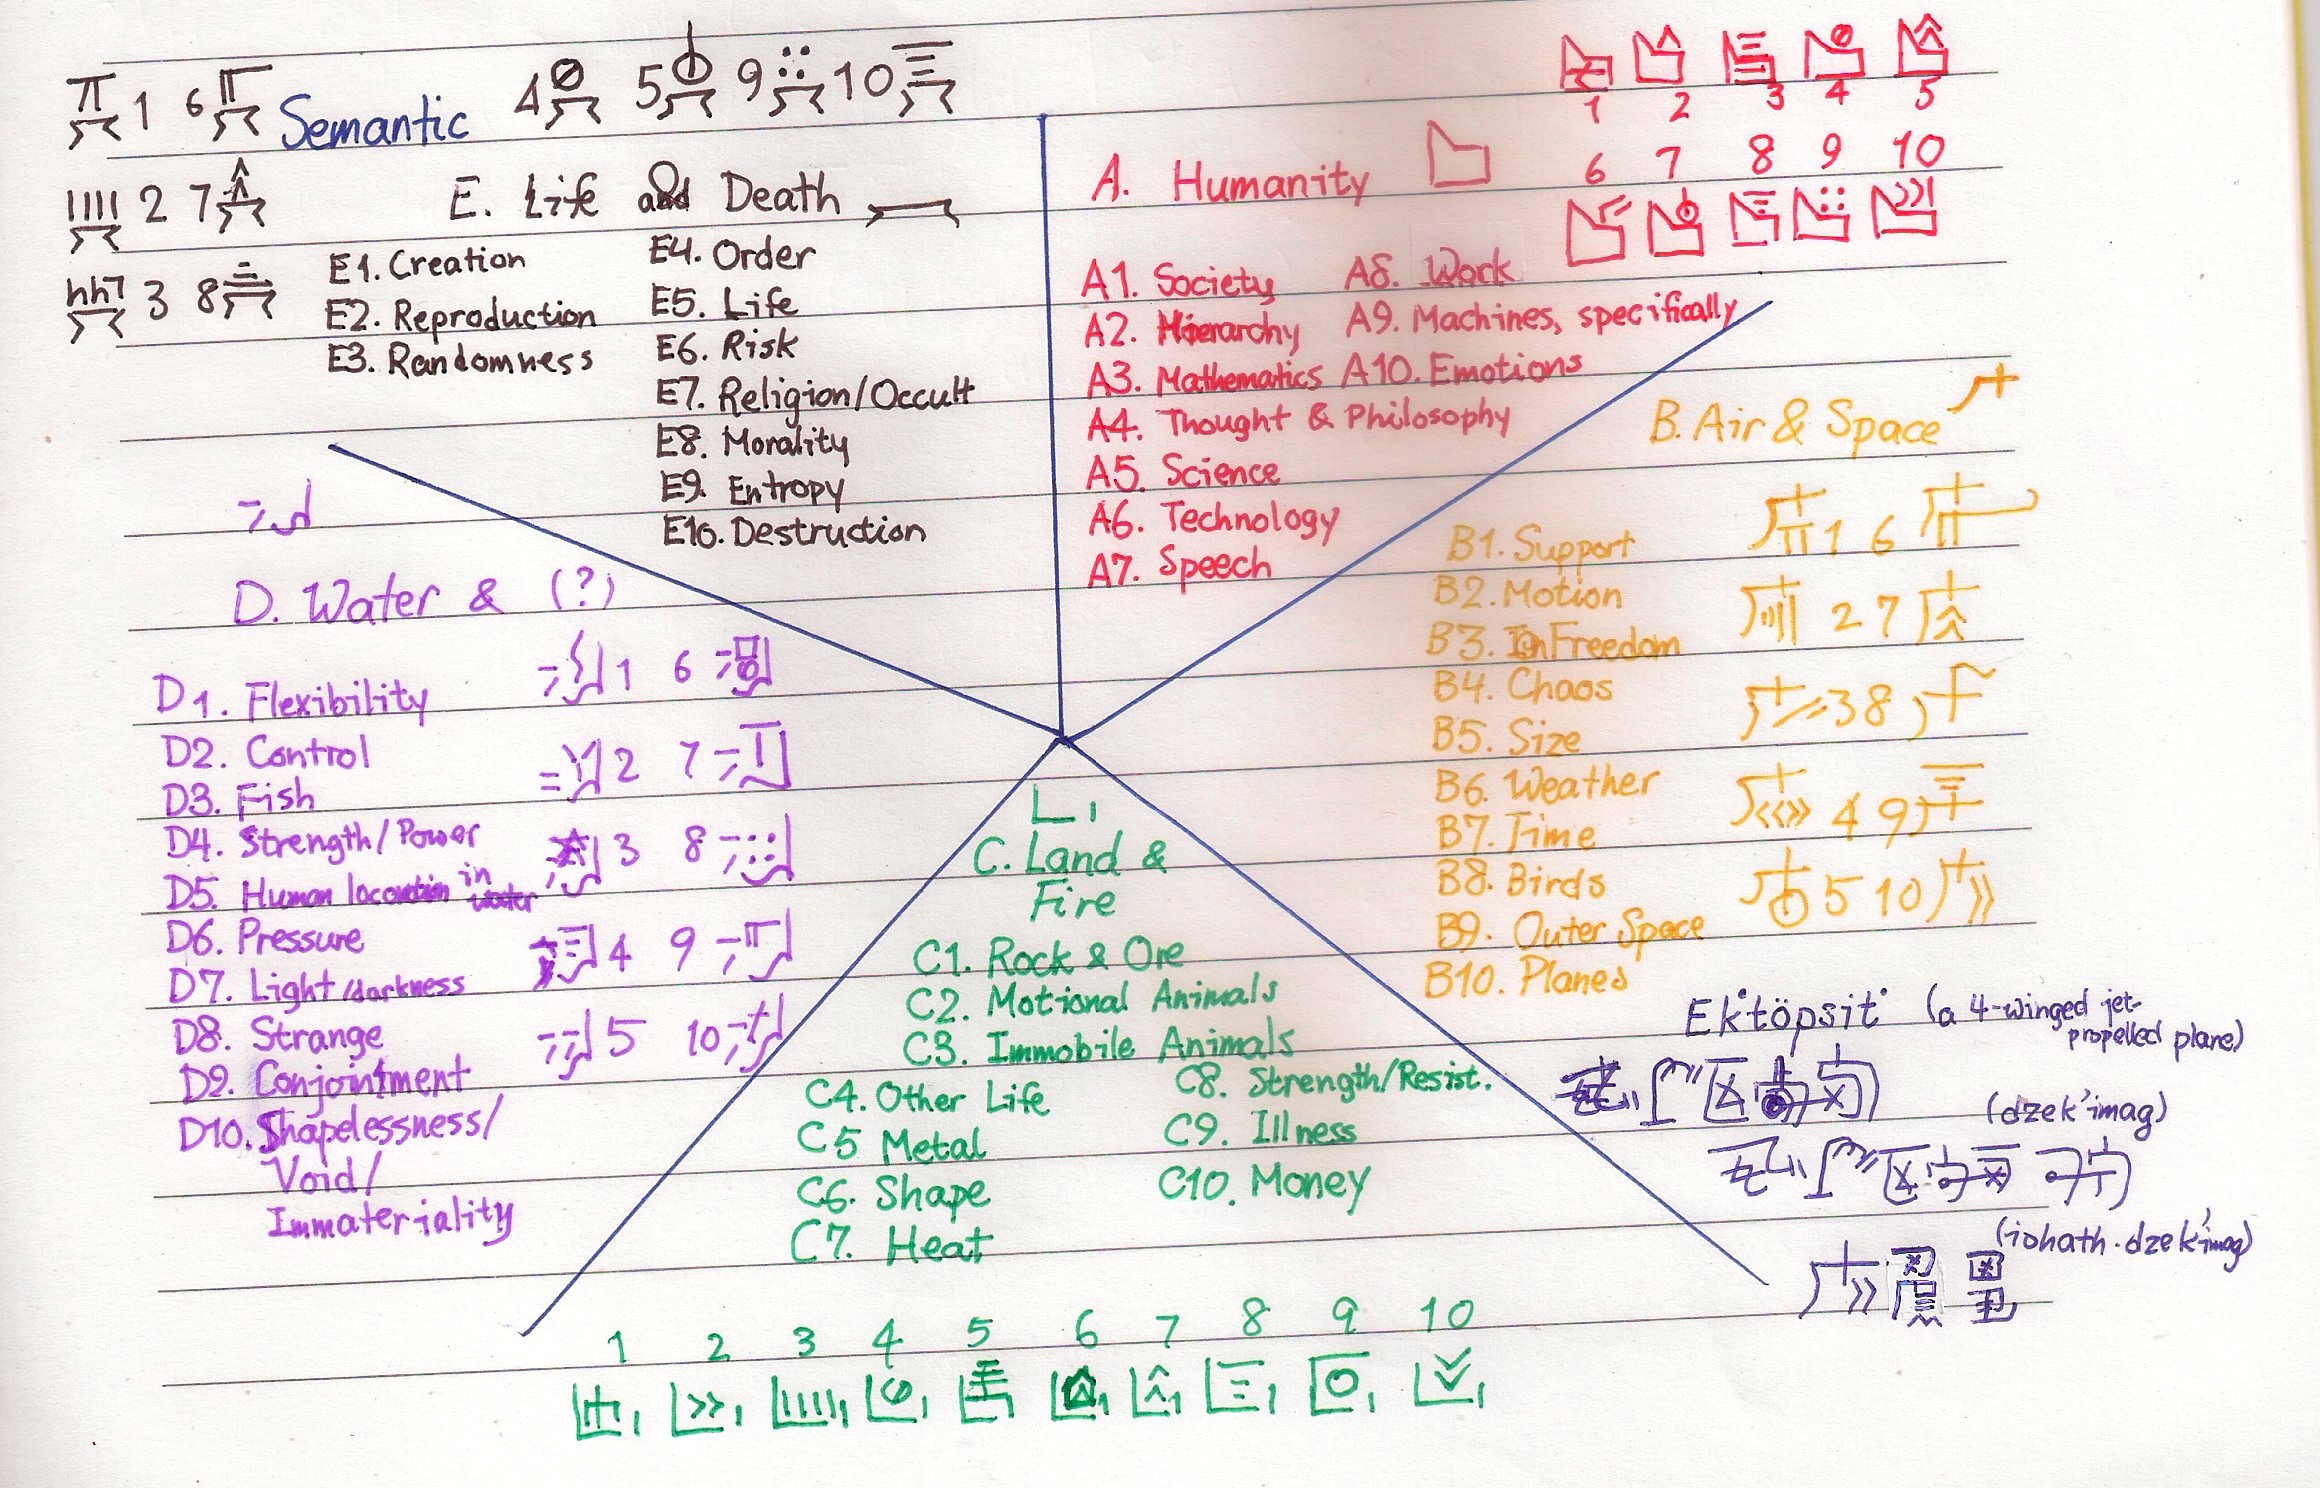 1 6 Semantic 4 5 9 10
2 7
3 8
E. Life and Death
E1. Creation
E2. Reproduction
E3. Randomness
E4. Order
E5. Life
E6. Risk
E7. Religion/Occult
E8. Morality
E9. Entropy
E10. Destruction
1 2 3 4 5
6 7 8 9 10
A. Humanity
A1. Society
A2. Hierarchy
A3. Mathematics
A4. Thought & Philosophy
A5. Science
A6. Technology
A7. Speech
A8. Work
A9. Machines, specifically
A10. Emotions
B. Air & Space
B1. Support
B2. Motion
B3. Freedom
B4. Chaos
B5. Size
B6. Weather
B7. Time
B8. Birds
B9. Outer Space
B10. Planes
1 6
2 7
3 8
4 9
5 10
D. Water & (?)
D1. Flexibility
D2. Control
D3. Fish
D4. Strength/Power
D5. Human locomotion in water
D6. Pressure
D7. Light/darkness
D8. Strange
D9. Conjointment
D10. Shapelessness/
Void/
Immateriality
1 6
2 7
3 8
4 9
5 10
C. Land &
Fire
C1. Rock & Ore
C2. Motional Animals
C3. Immobile Animals
C4. Other Life
C5 Metal
C6. Shape
C7. Heat
C8. Strength/Resist.
C9. Illness
C10. Money
1 2 3 4 5 6 7 8 9 10
(a 4-winged jet-
propelled plane)
(dzek'imag)
(iohath·dzek'imag)